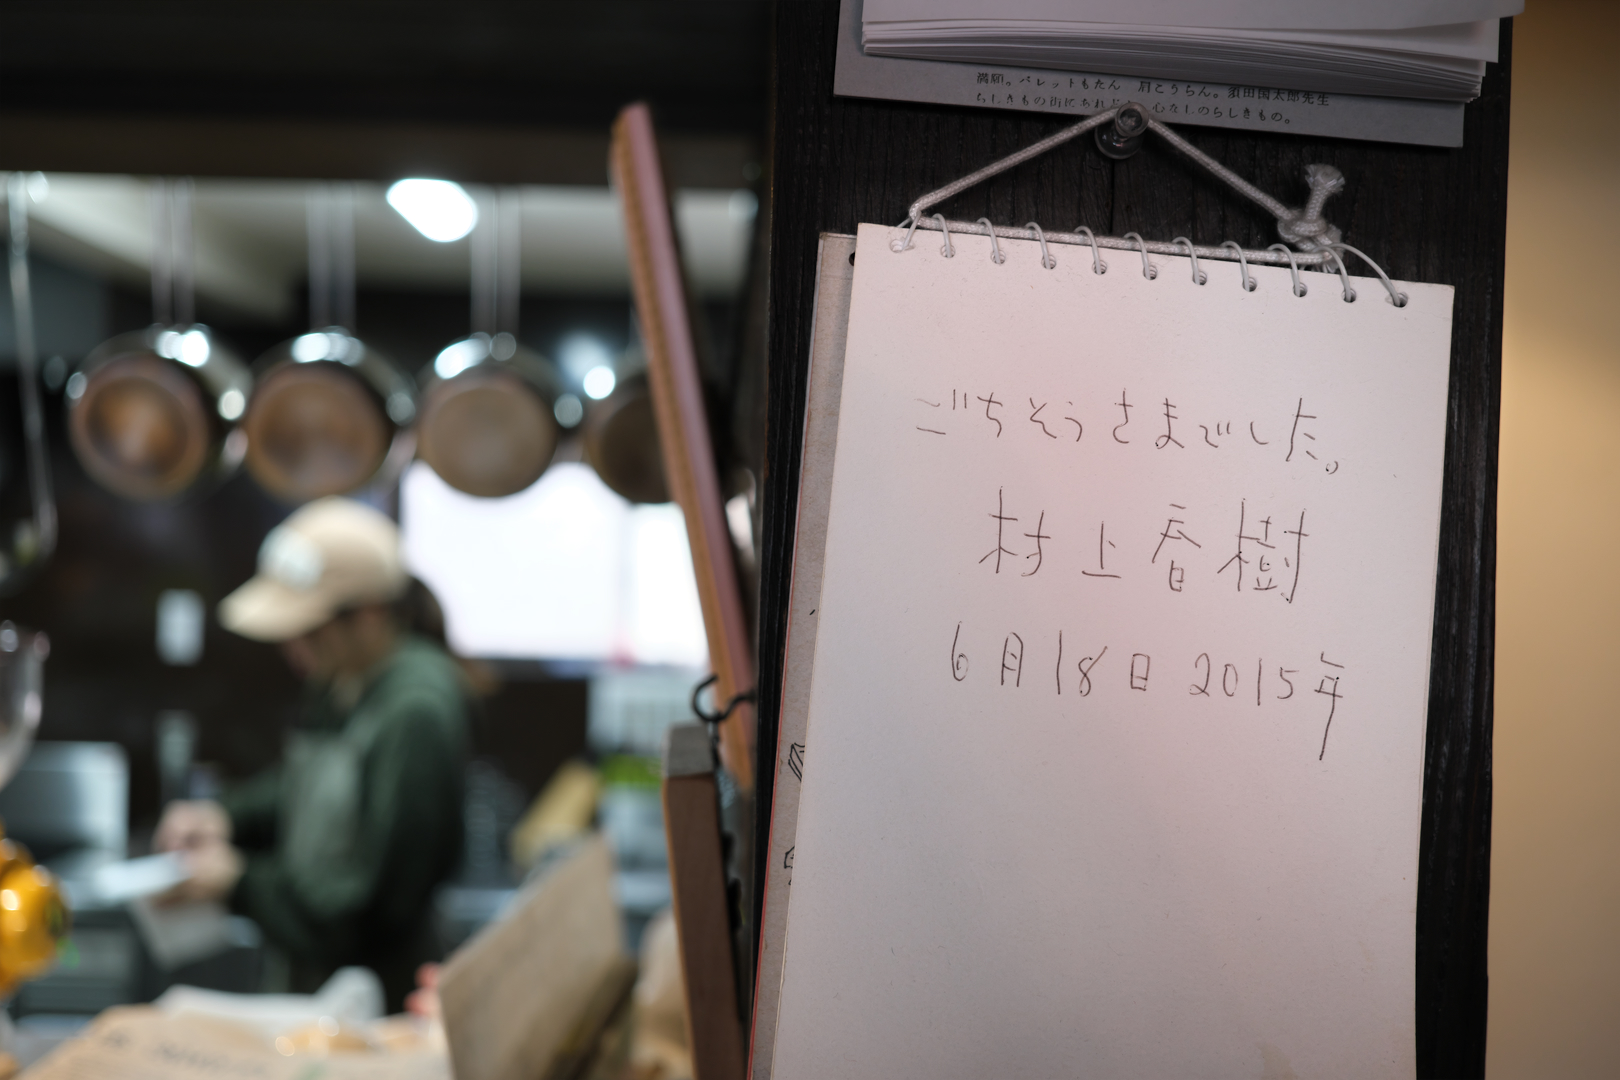 満願。パレットもたん 肩こうらん。須田国太郎先生
らしきもの街にあれど 心なしのらしきもの。
ごちそうさまでした。
村上春樹
6月18日 2015年